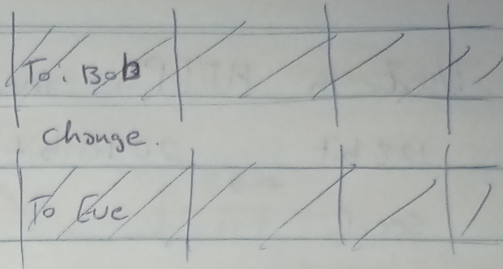 To. Bob
change.
To Eve